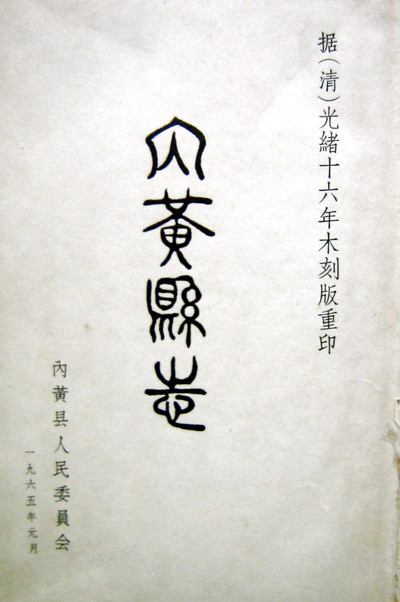 据(清)光緒十六年木刻版重印
内黃縣志
內黃县人民委員会
一九六五年元月